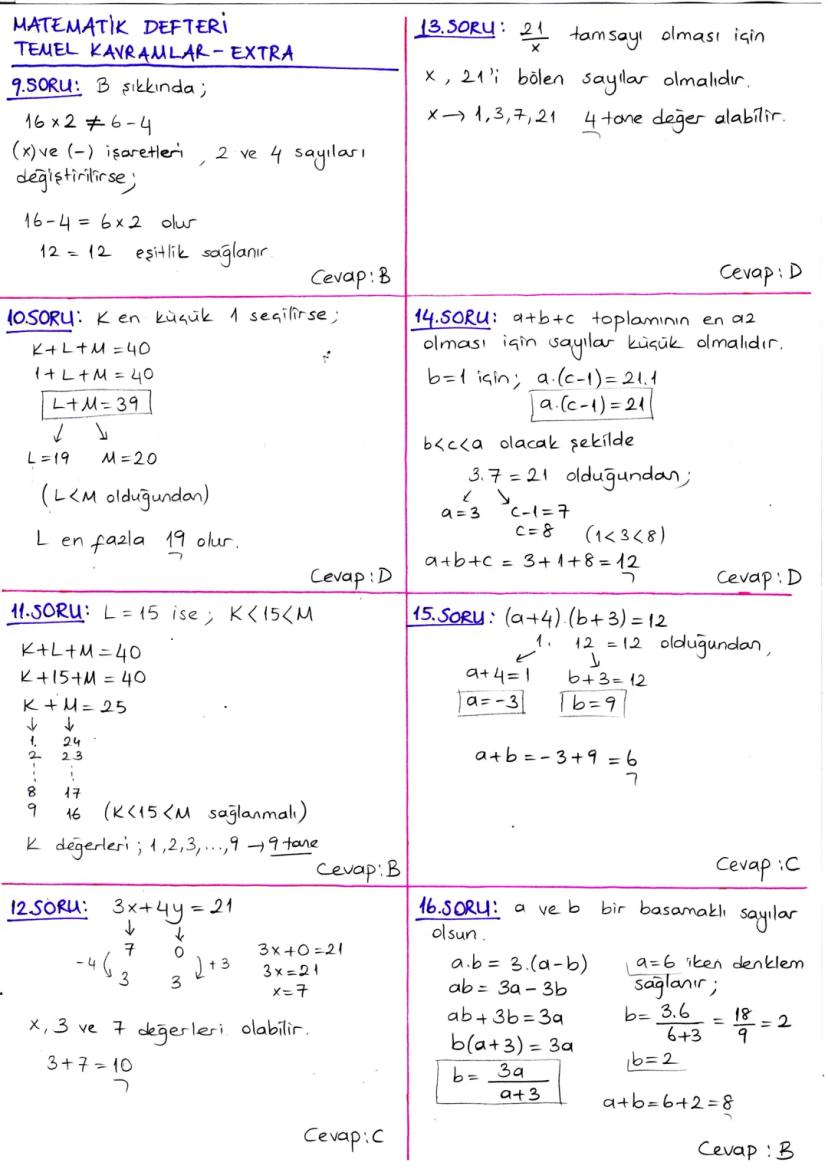 MATEMATİK DEFTERİ
TEMEL KAVRAMLAR - EXTRA
9.SORU: B şıkkında;
16 x 2 ≠ 6 - 4
(x) ve (-) işaretleri, 2 ve 4 sayıları
değiştirilirse;
16 - 4 = 6 x 2 olur
12 = 12 eşitlik sağlanır.
Cevap: B
10.SORU: K en küçük 1 seçilirse;
K+L+M = 40
1+L+M = 40
L+M = 39
↓ ↘
L=19 M=20
(L<M olduğundan)
L en fazla 19 olur.
Cevap: D
11.SORU: L = 15 ise; K<15<M
K+L+M = 40
K+15+M = 40
K + M = 25
↓ ↓
1 24
2 23
⋮ ⋮
8 17
9 16 (K<15<M sağlanmalı)
K değerleri; 1,2,3,...,9 → 9 tane
Cevap: B
12.SORU: 3x+4y = 21
↓ ↓
7 0 3x+0=21
-4 +3 3x=21
3 3 x=7
x, 3 ve 7 değerleri olabilir.
3+7 = 10
Cevap: C
13.SORU: 21/x tamsayı olması için
x, 21'i bölen sayılar olmalıdır.
x → 1,3,7,21 4 tane değer alabilir.
Cevap: D
14.SORU: a+b+c toplamının en az
olması için sayılar küçük olmalıdır.
b=1 için; a.(c-1) = 21.1
a.(c-1) = 21
b<c<a olacak şekilde
3.7 = 21 olduğundan;
↙ ↘
a=3 c-1=7
c=8 (1<3<8)
a+b+c = 3+1+8 = 12
Cevap: D
15.SORU: (a+4).(b+3) = 12
1. 12 = 12 olduğundan,
↙ ↓
a+4=1 b+3=12
a=-3 b=9
a+b = -3+9 = 6
Cevap: C
16.SORU: a ve b bir basamaklı sayılar
olsun.
a.b = 3.(a-b) a=6 iken denklem
ab = 3a - 3b sağlanır;
ab + 3b = 3a b = 3.6/6+3 = 18/9 = 2
b(a+3) = 3a b=2
b = 3a/a+3
a+b = 6+2 = 8
Cevap: B